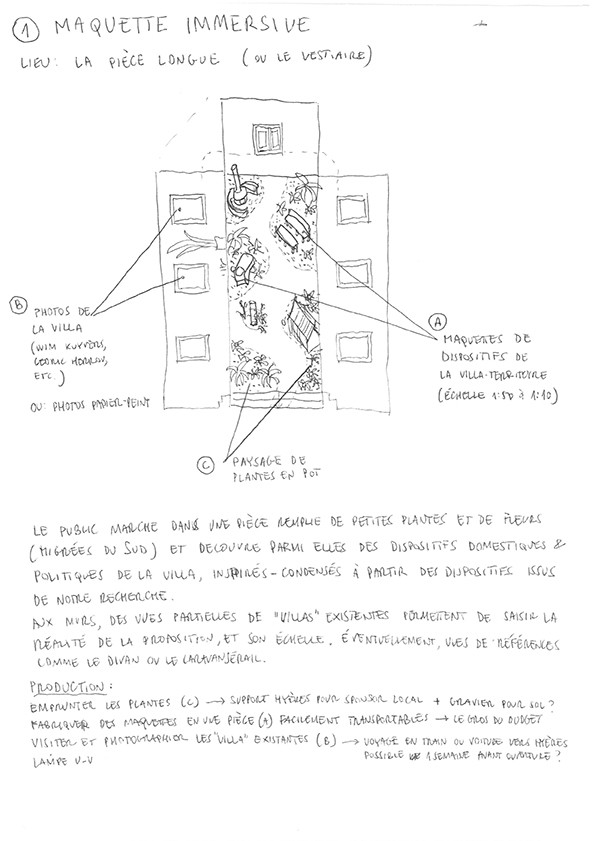 1 MAQUETTE IMMERSIVE
LIEU: LA PIÈCE LONGUE (OU LE VESTIAIRE)
B PHOTOS DE
LA VILLA
(WIM CUYVERS,
CEDRIC HERROU,
ETC.)
OU: PHOTOS PAPIER-PEINT
A
MAQUETES DE
DISPOSITIFS DE
LA VILLA-TERRITOIRE
(ÉCHELLE 1:50 à 1:10)
C PAYSAGE DE
PLANTES EN POT
LE PUBLIC MARCHE DANS UNE PIÈCE REMPLIE DE PETITES PLANTES ET DE FLEURS
(MIGRÉES DU SUD) ET DECOUVRE PARMI ELLES DES DISPOSITIFS DOMESTIQUES &
POLITIQUES DE LA VILLA, INSPIRÉS-CONDENSÉS À PARTIR DES DISPOSITIFS ISSUS
DE NOTRE RECHERCHE.
AUX MURS, DES VUES PARTIELLES DE "VILLAS" EXISTENTES PERMETTENT DE SAISIR LA
RÉALITÉ DE LA PROPOSITION, ET SON ÉCHELLE. ÉVENTUELLEMENT, VUES DE RÉFÉRENCES
COMME LE DIVAN OU LE CARAVANSÉRAIL.
PRODUCTION:
EMPRUNTER LES PLANTES (C) → SUPPORT HYÈRES POUR SPONSOR LOCAL + GRAVIER POUR SOL?
FABRIQUER DES MAQUETTES EN VUE PIÈCE (A) FACILEMENT TRANSPORTABLES → LE GROS DU BUDGET
VISITER ET PHOTOGRAPHIER LES "VILLA" EXISTANTES (B) → VOYAGE EN TRAIN OU VOITURE VERS HYÈRES
POSSIBLE 1 SEMAINE AVANT OUVERTURE?
LAMPE U-V